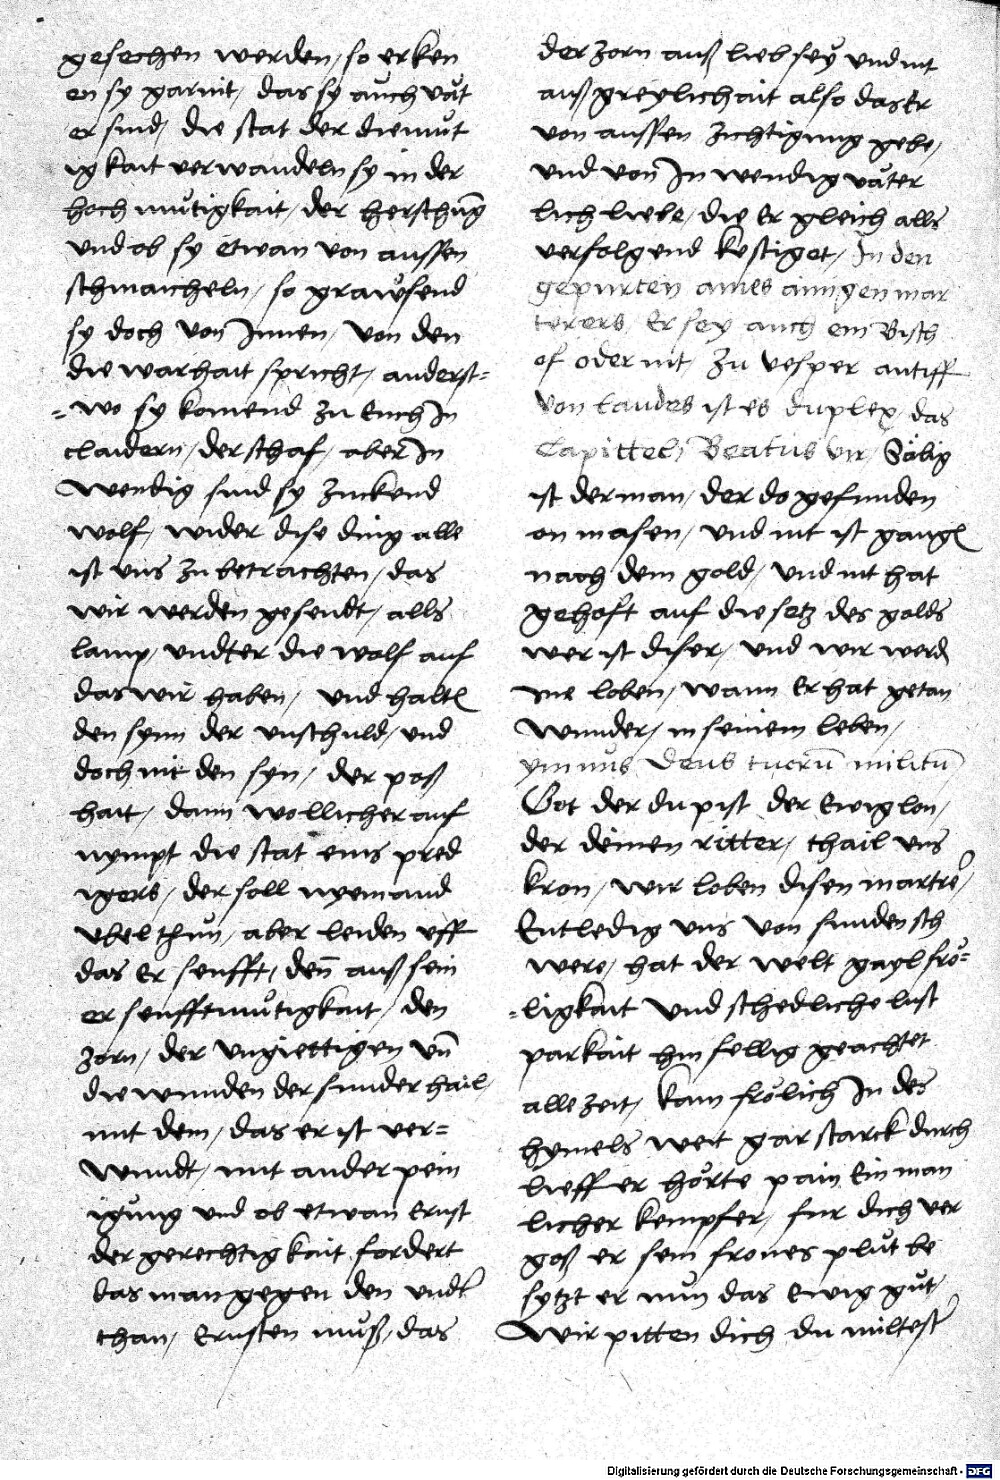 gesechen werden / so erken
en sy garnit / das sy auch vät
er sind / die stat der diemüt
igkait verwandeln sy in der
hoch mütigkait / der herschūg
vnd ob sy etwan von aussen
schmaicheln / so grawsend
sy doch von Innen / Von den
die warhait spricht / anderst=
=wo sy komend zu Euch In
claidern / der schaf / aber In
Wendig sind sy zuckend
wolf / wider dise ding alle
ist vns zu betrachten / das
wir werden gesendt / alls
lamp / vndter die wolf auf
das wir haben / vnd halt
den synn der vnschuld / vnd
doch nit den syn / der poß
hait / dann wöllicher auf
nympt die stat eins pred
igers / der soll nyemand
vbel thun / aber leiden vff
das Er senfft / den̄ auß sein
er senfftmütigkait / den
zorn / der vngiettigen vn̄
die wunden der sunder hail /
mit dem / das er ist ver=
Wundt / mit ander pein
igung vnd ob etwan Ernst
der gerechtigkait fordert
das man gegen den vndt
than / Ernsten muß / das
der zorn auß lieb sey vnd nit
auß greylichait also das Er
von aussen zichtigung gebe /
vnd von In wendig väter
lich liebe / die Er gleich alls
verfolgend kestiget / In den
gepurten aines ainigen mar
terers / Er sey auch ein Bisch
of oder nit / Zu Vesper antiff
von laudes ist es duplex / das
Capittel / Beatus vir / Sälig
ist der man / der do gefunden
on masen / vnd nit ist gang
nach dem gold / vnd nit hat
gehoft auf die setz des golds
wer ist diser / vnd wir werd
ine loben / wann Er hat getan
Wunder / in seinem leben /
ymnus Deus tuorū militū
Got der du pist der Ewig lon /
der deinen ritter / thail vns
kron / wir loben disen martrer /
Entledig vns von sunden sch
were / hat der welt gayl frö=
=ligkait vnd schedliche lust
parkait hin fellig geachtet
alle zeit / kam frölich In des
hymels weit gar starck durch
lieff er horte pain Ein man
licher kempfer / fur dich ver
goß er sein frones plut be
sytzt er nun das Ewig gut /
Wir pitten dich du miltester